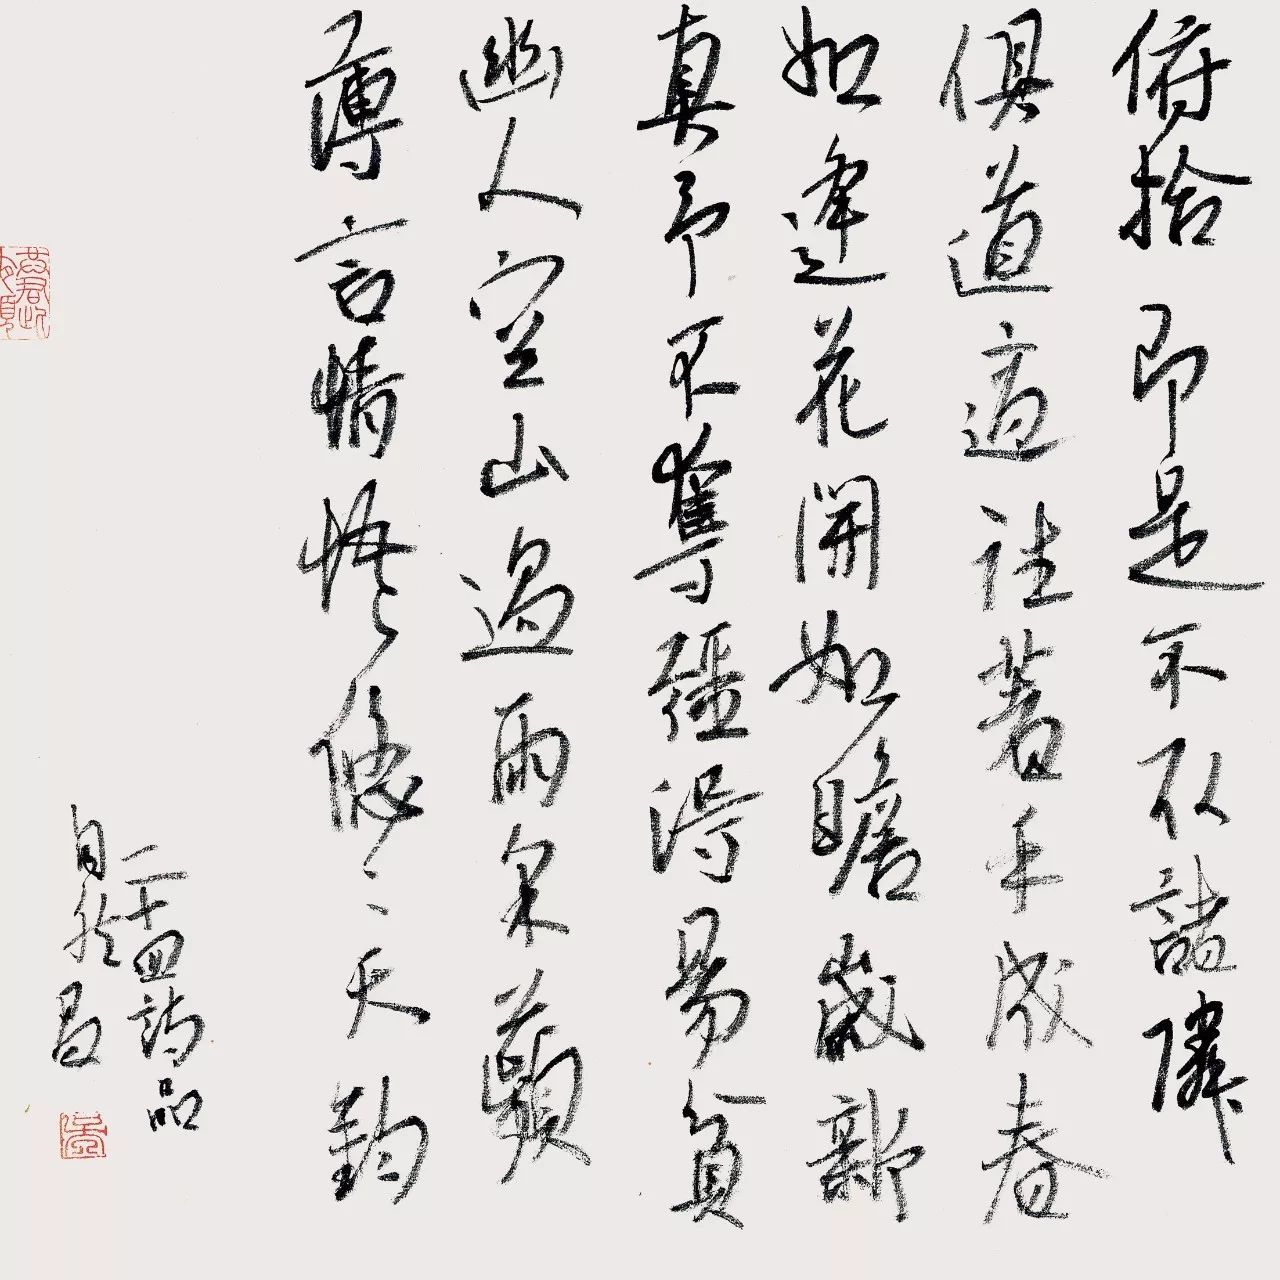 俯拾即是不取諸隣
俱道適往著手成春
如逢花開如瞻歲新
真予不奪彊得易貧
幽人空山過雨采蘋
薄言情悟悠〻天鈞
二十四詩品
自然